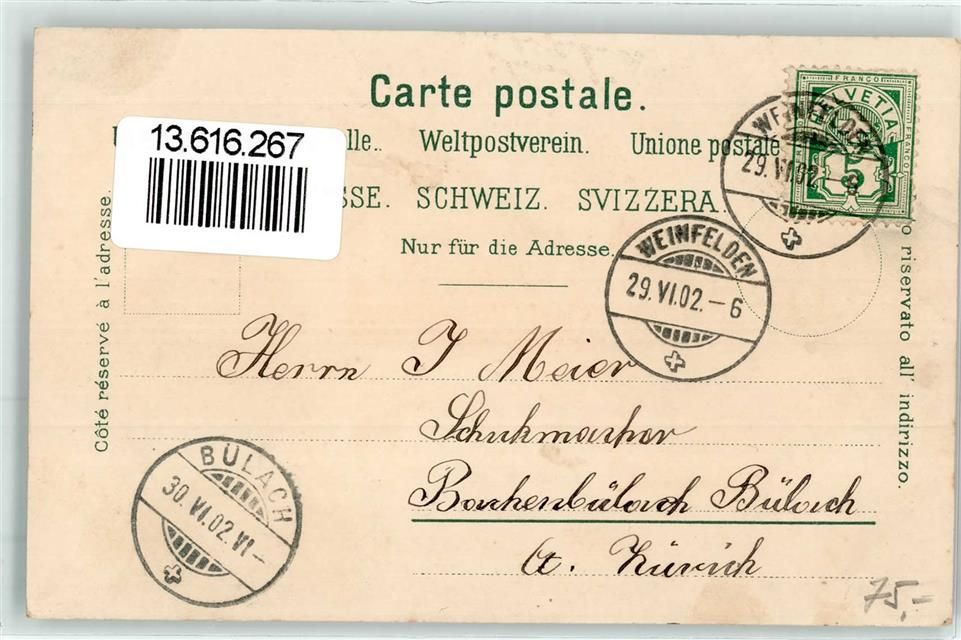 Carte postale.
13.616.267
lle.. Weltpostverein. Unione postale
SSE. SCHWEIZ. SVIZZERA.
Nur für die Adresse.
FRANCO
HELVETIA
FRANCO
5
WEINFELDEN
29.VI.02.-6
WEINFELDEN
29.VI.02.-6
Côté réservé à l'adresse.
riservato all' indirizzo.
Herrn J Meier
Schuhmacher
Bachenbülach Bülach
Ct. Zürich
BÜLACH
30.VI.02.VI-
75,-